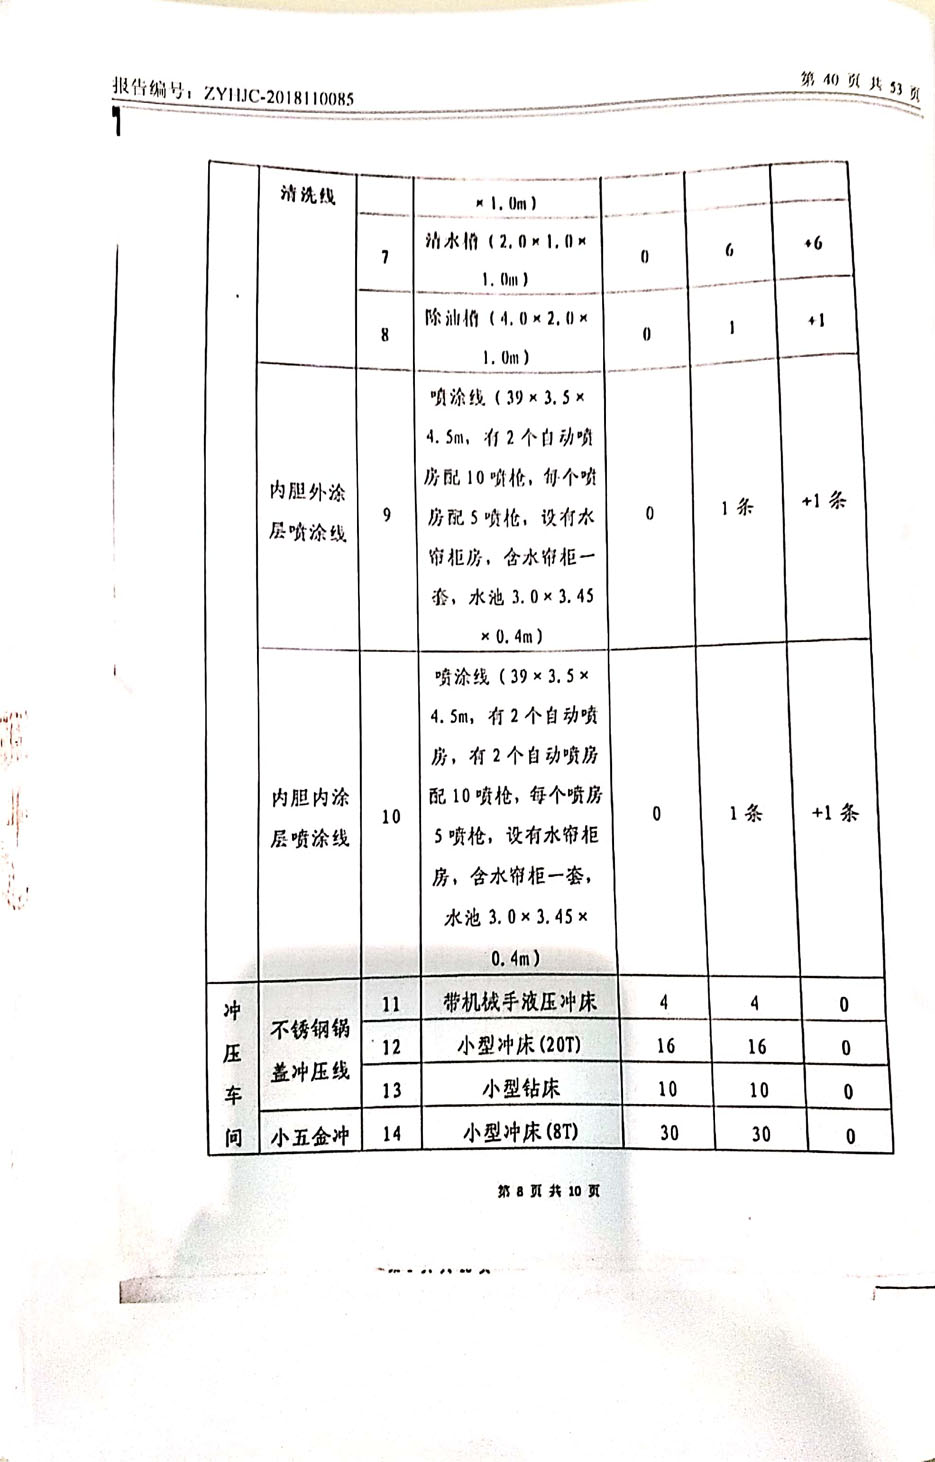 报告编号：ZYHJC-2018110085
第 40 页 共 53 页
清洗线
× 1.0m）
7
清水槽（2.0×1.0×
1.0m）
0
6
+6
8
除油槽（4.0×2.0×
1.0m）
0
1
+1
内胆外涂
层喷涂线
9
喷涂线（39×3.5×
4.5m，有2个自动喷
房配10喷枪，每个喷
房配5喷枪，设有水
帘柜房，含水帘柜一
套，水池3.0×3.45
×0.4m）
0
1条
+1条
内胆内涂
层喷涂线
10
喷涂线（39×3.5×
4.5m，有2个自动喷
房，有2个自动喷房
配10喷枪，每个喷房
5喷枪，设有水帘柜
房，含水帘柜一套，
水池3.0×3.45×
0.4m）
0
1条
+1条
冲
压
车
间
不锈钢锅
盖冲压线
11
带机械手液压冲床
4
4
0
12
小型冲床(20T)
16
16
0
13
小型钻床
10
10
0
小五金冲
14
小型冲床(8T)
30
30
0
第 8 页 共 10 页